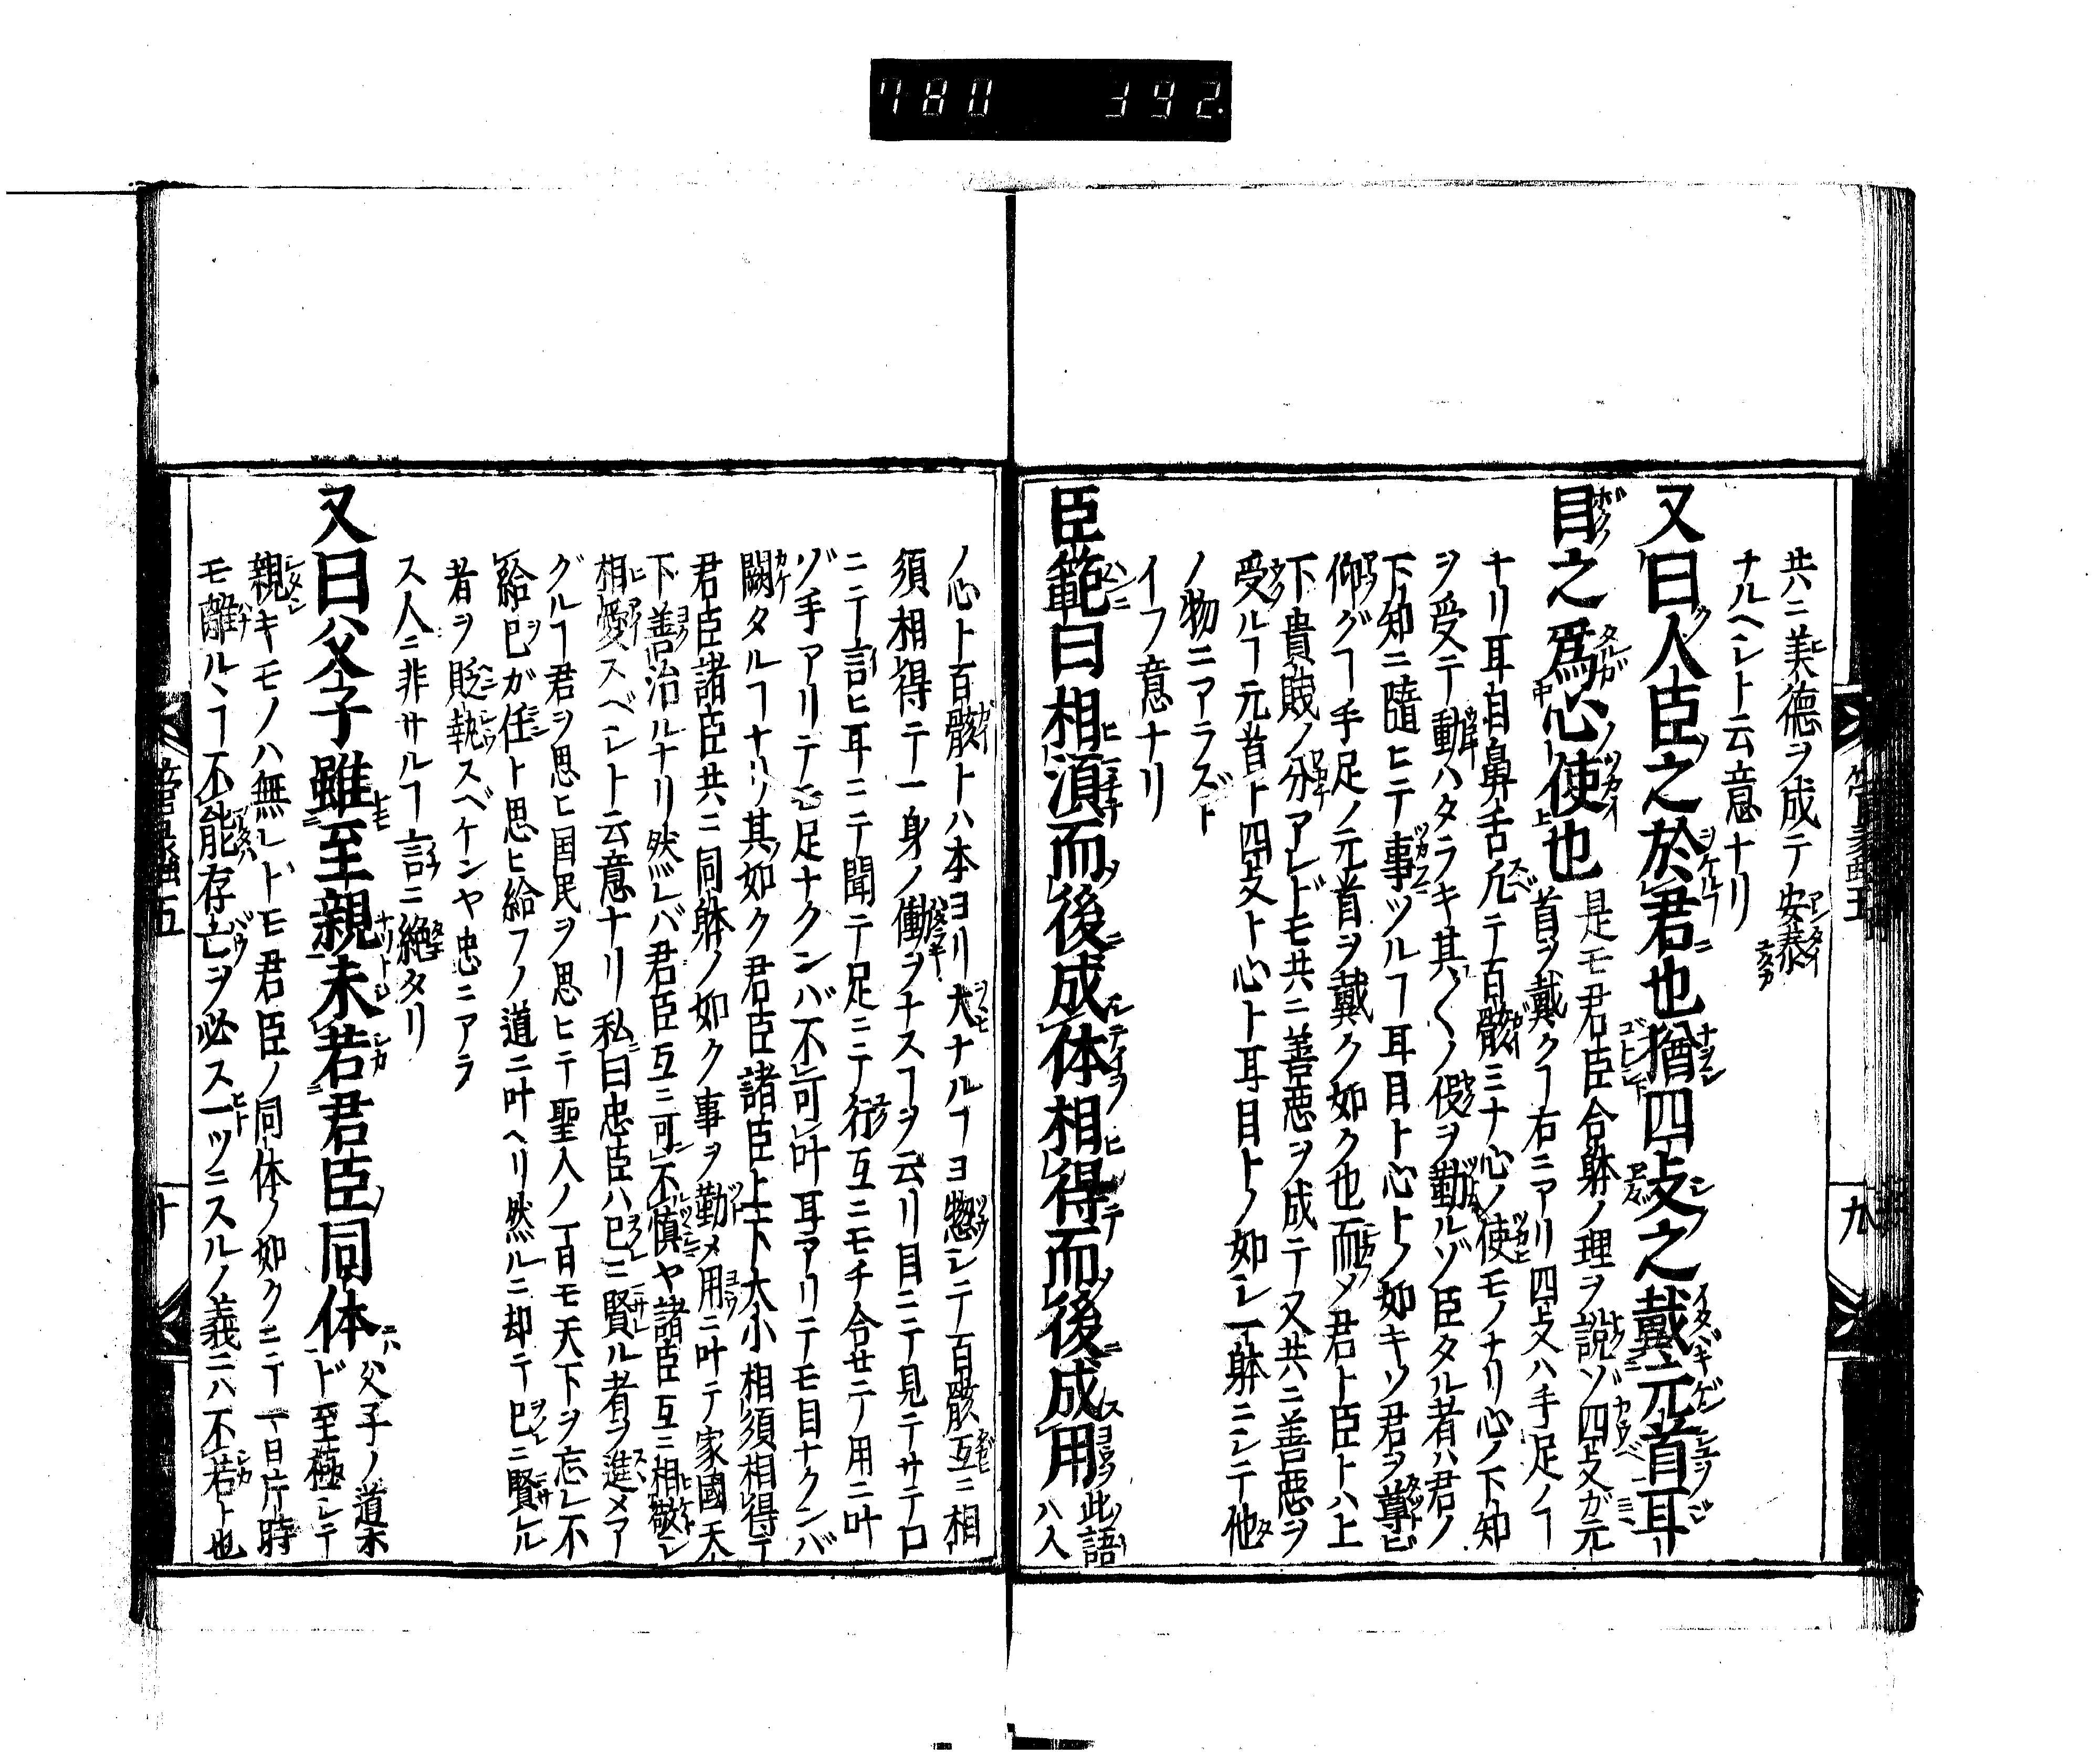 780 392
共ニ美徳ヲ成テ安泰
ナルヘシト云意ナリ
又曰人臣之於君也猶四支之戴元首耳
目之爲心使也 是モ君臣合躰ノ理ヲ説ゾ四支ガ元
首ヲ戴クヿ右ニアリ四支ハ手足ノヿ
ナリ耳目鼻舌凡テ百骸ミナ心ノ使モノナリ心ノ下知
ヲ受テ動ハタラキ其〱ノ役ヲ勤ルゾ臣タル者ハ君ノ
下知ニ隨ヒテ事ヅルヿ耳目ト心トノ如キソ君ヲ尊ビ
仰グヿ手足ノ元首ヲ戴ク如ク也而メ君ト臣トハ上
下貴賤ノ分アレドモ共ニ善惡ヲ成テ又共ニ善惡ヲ
受ルヿ元首ト四支ト心ト耳目トノ如シ一躰ニシテ他
ノ物ニアラズト
イフ意ナリ
臣範曰相湏而後成体相得而後成用 此語
ハ人
九
ノ心ト百骸トハ本ヨリ大ナルヿヨ惣シテ百骸互ニ相
須相得テ一身ノ働ヲナスヿヲ云リ目ニテ見テサテ口
ニテ言ヒ耳ニテ聞テ足ニテ行互ニモチ合せテノ用ニ叶
ゾ手アリテモ足ナクンバ不可叶耳アリテモ目ナクンバ
闕タルヿナリ其如ク君臣諸臣上下大小相須相得テ
君臣諸臣共ニ同躰ノ如ク事ヲ勤メ用ニ叶テ家國天
下善治ルナリ然レバ君臣互ニ可不慎ヤ諸臣互ニ相敬シ
相愛スベシト云意ナリ私曰忠臣ハ已ニ賢ル者ヲ進メア
グルヿ君ヲ思ヒ国民ヲ思ヒテ聖人ノ一百モ天下ヲ忘レ不
給已ガ任ト思ヒ給フノ道ニ叶ヘリ然ルニ却テ已ニ賢ル
者ヲ貶執スベケンヤ忠ニアラ
ス人ニ非サルヿ言ニ絶タリ
又曰父子雖至親未若君臣同体 父子ノ道ホ
ド至極シテ
親キモノハ無レトモ君臣ノ同体ノ如クニテ一日片時
モ離ルヽヿ不能存亡ヲ必ス一ツニスルノ義ニハ不若ト也
五
十